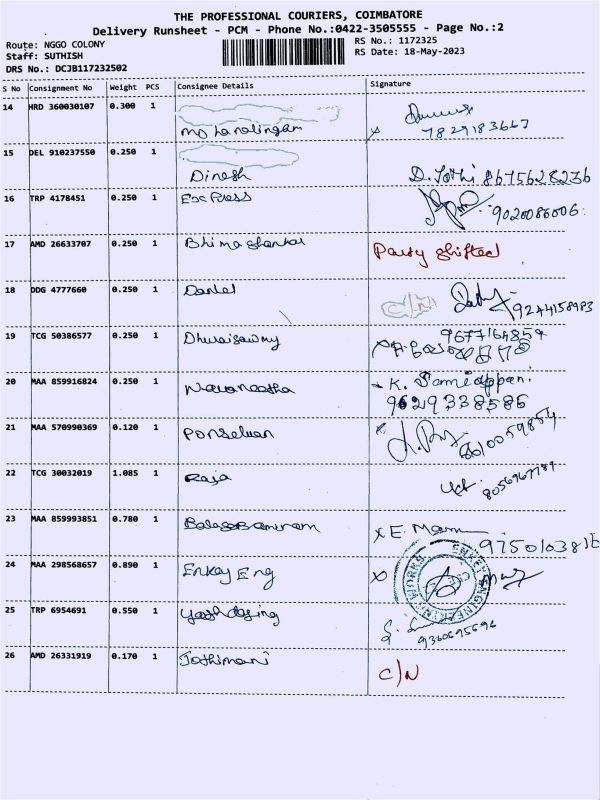 THE PROFESSIONAL COURIERS, COIMBATORE
Delivery Runsheet - PCM - Phone No.:0422-3505555 - Page No.:2
Route: NGGO COLONY
Staff: SUTHISH
DRS No.: DCJB117232502
RS No.: 1172325
RS Date: 18-May-2023
S No Consignment No Weight PCS Consignee Details Signature
14 HRD 360030107 0.300 1 Mohanalingam 7829183667
15 DEL 910237550 0.250 1 Dinesh D. Jothi 8675628236
16 TRP 4178451 0.250 1 9020086006
17 AMD 26633707 0.250 1 Bhima shankar Party shifted
18 DDG 4777660 0.250 1 Daniel C/N 9244158983
19 TCG 50386577 0.250 1 9677164854
20 MAA 859916824 0.250 1 K. Samiappan. 9629338585
21 MAA 570990369 0.120 1 Ponselvan 8010059854
22 TCG 30032019 1.085 1 Raja 8056967787
23 MAA 859993851 0.780 1 X E. Mann 9750103816
24 MAA 298568657 0.890 1 Enkay Eng X
ENKAY ENGINEERING WORKS
25 TRP 6954691 0.550 1 9360695696
26 AMD 26331919 0.170 1 Jothimani C/N